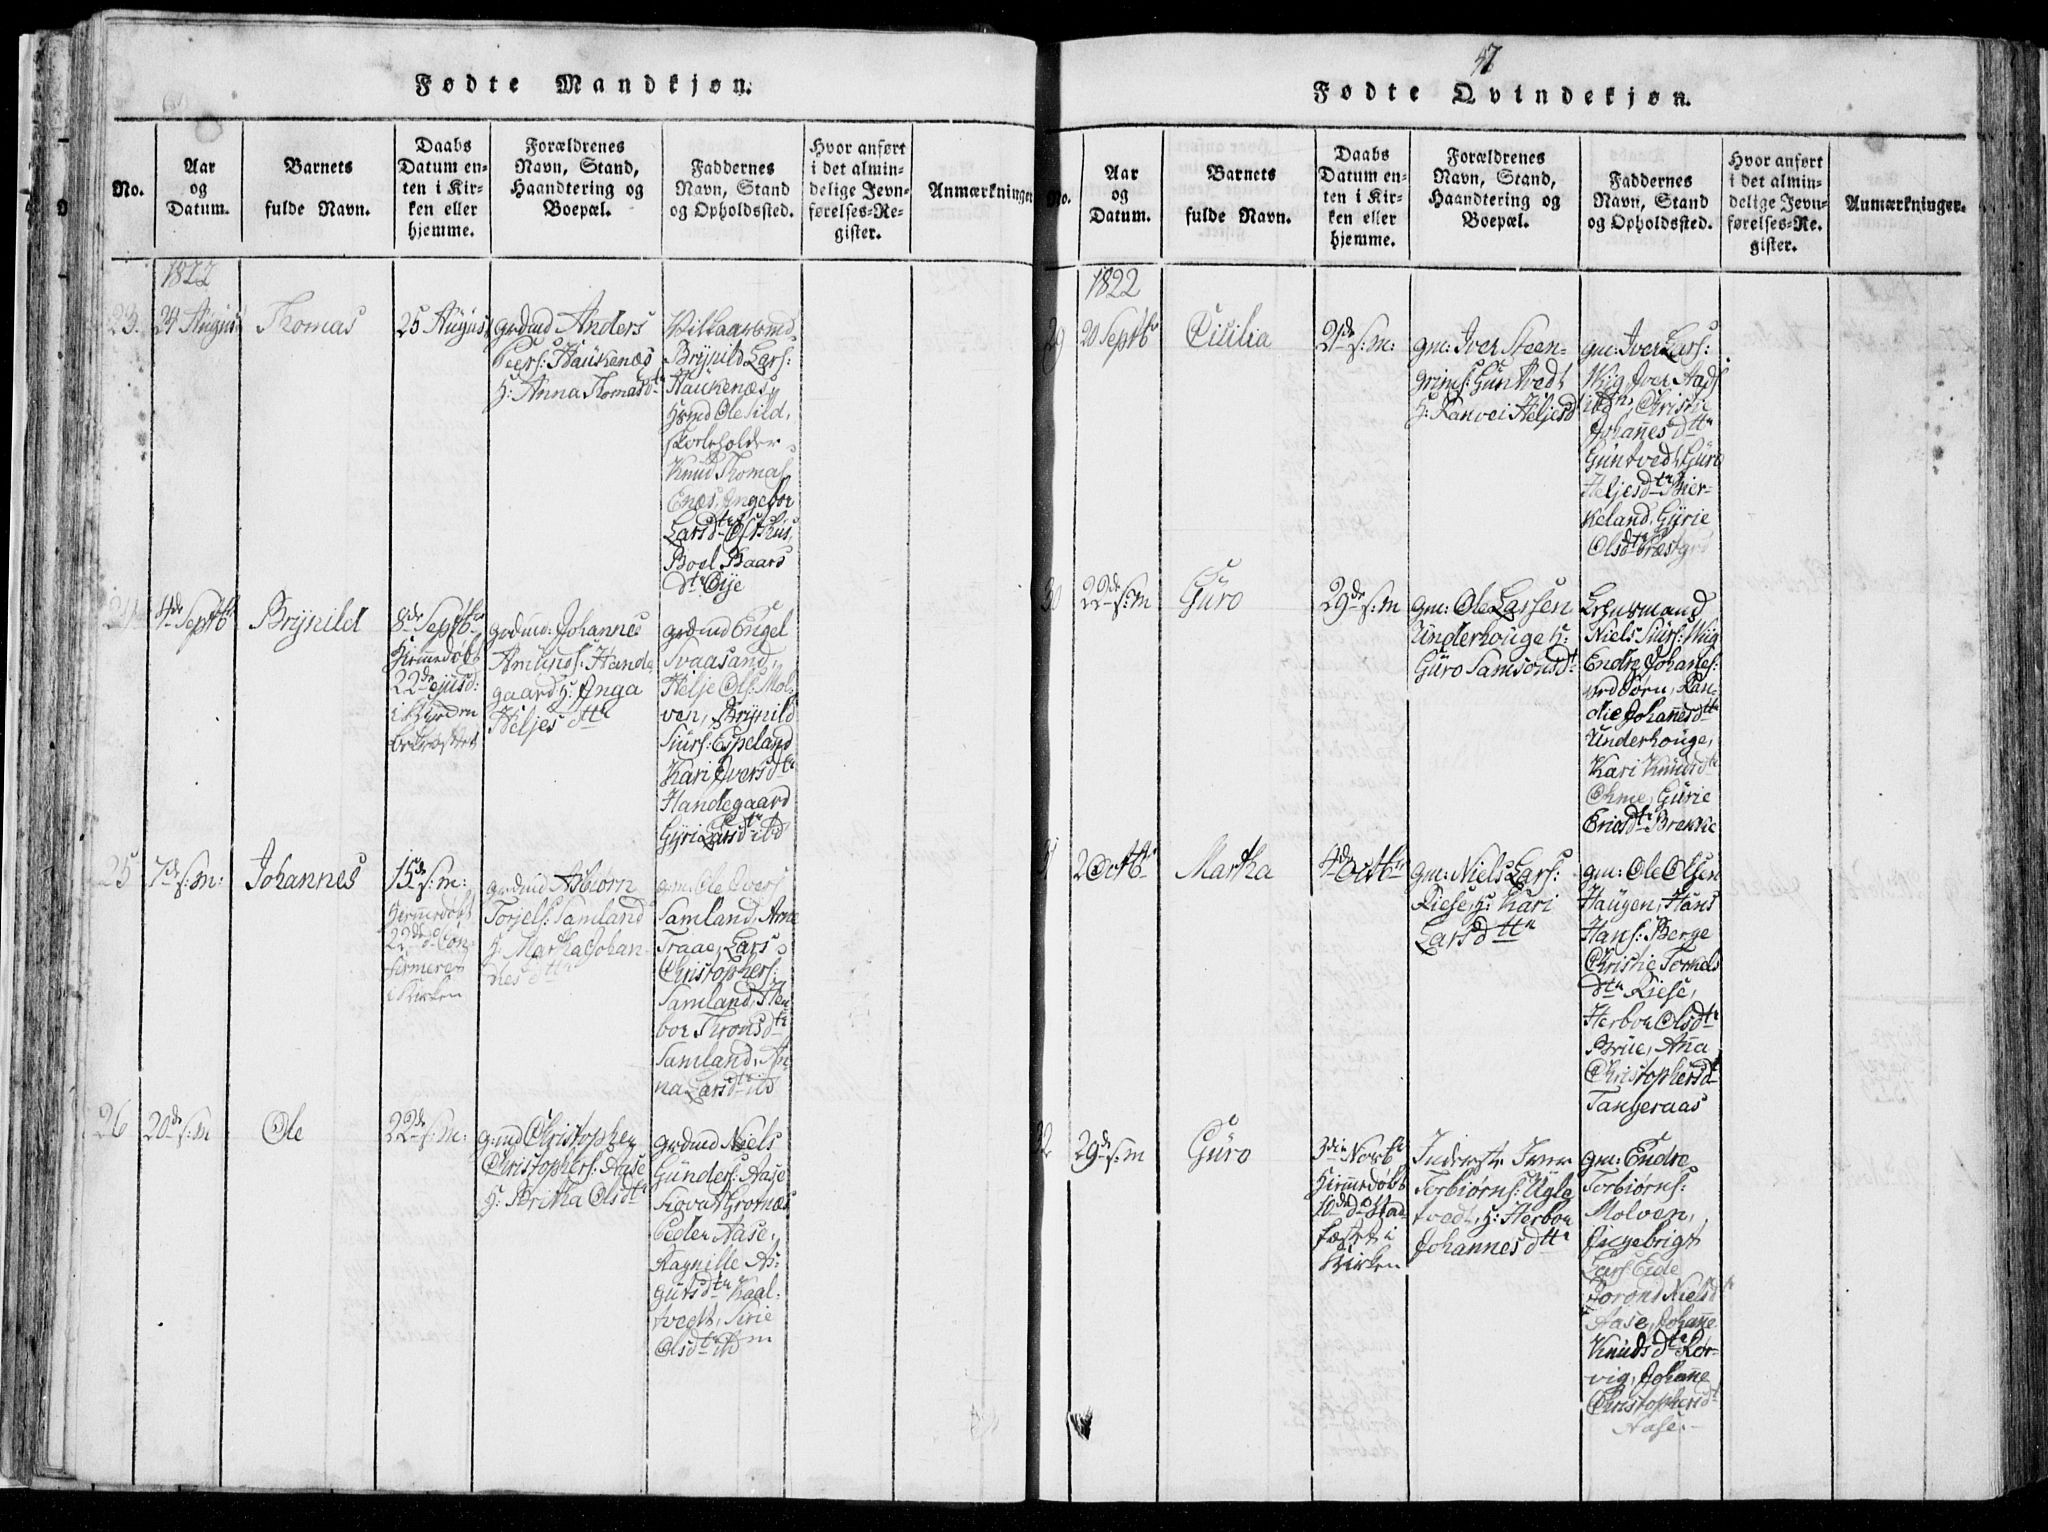 Fødte Mandkjøn.
No.
Aar
og
Datum.
Barnets
fulde Navn.
Daabs
Datum en-
ten i Kir-
ken eller
hjemme.
Forældrenes
Navn, Stand,
Haandtering og
Boepæl.
Faddernes
Navn, Stand
og Opholdssted.
Hvor anført
i det almin-
delige Jevn-
førelses-Re-
gister.
Anmærkninger
1822
23.
24 August
Thomas
25 August
grdmd Anders
Peers: Haukenæs
H: Anna Thomasdtr
Brynild Lars:
Haukenæs,
Ole Sild,
Knud Thomas
Enæs, Ingebor
Larsdtr Olthus,
Boel Baars
dtr Øije
24
4de Septbr
Brynild
8de Septbr
hiemmedøbt
22de ejusd:
i Kirken
grdmd: Johannes
Amunds: Hande
gaard H: Inga
Heljesdttr
grdmd Engel
Svaasand,
Helje Ols: Mol-
ven, Brynild
Siurs: Espeland
Kari Iversdtr
Handegaard
Gyri Larsdtr ibd
25
7de s: m:
Johannes
15de s: m:
hiemmedøbt
22de do Con-
firmeret
i Kirken
grdmd Asbiørn
Torjels: Samland
H: Martha Johan-
nesdttr
gm: Ole Ivers
Samland, Arne
Traae, Lars
Christophers:
Samland, Her
bor Thronsdtr
Samland, An-
na Larsdtr ibd
26
20de s: m
Ole
22de s: m:
gmd Christopher
Christophers: Aase
H: Britha Olsdtr
grdmd Niels
Gunders: Aase
Siovat Grotnæs
Peder Aase,
Ragnille As-
gutsdtr Kaal-
tvegt, Sirie
Olsdtr ibdm
47
Fødte Qvindekjøn.
No.
Aar
og
Datum.
Barnets
fulde Navn.
Daabs
Datum en-
ten i Kir-
ken eller
hjemme.
Forældrenes
Navn, Stand,
Haandtering og
Boepæl.
Faddernes
Navn, Stand
og Opholdssted.
Hvor anført
i det almin-
delige Jevn-
førelses-Re-
gister.
Anmærkninger.
1822
29
20 Septbr
Cicilia
21de s: m:
gm: Iver Steen-
grims: Guntvedt
H: Ranvei Heljesd
gm: Iver Lars:
Wig, Iver Aads
ibdm, Christie
Johannesdttr
Guntvedt, Guro
Heljesdtr Bier-
keland, Gyrie
Olsdtr Præstgrd
30
22de s: m
Guro
29de s: m
gm: Ole Larsen
Underhouge H:
Guro Samsonsdt
Lehnsmand
Niels Siurs: Wiig
Endre Johanes:
Ran-
die Johannesdttr
Underhouge,
Kari Knudsdtr
Ohme, Gurie
Ericsdtr Brekke
31
2 Octbr
Martha
4de Octbr
gm: Niels Lars:
Riese, H: Kari
Larsdttr
gm: Ole Olsen
Haugen, Hans
Hans: Berge
Christie Torkels
dtr Riese,
Herbor Olsdtr
Brue, Anna
Christophersdt
Tangeraas
32
29de s: m
Guro
3die Novbr
hiemmedøbt
10de do Stad-
fæstet i
Kirken
Inderste Iver
Torbiørns: Ugle
tvedt, H: Herbor
Johannesdttr
gm: Endre
Torbiørns:
Molven,
Ingebrigt
Lars: Eide
Torond Nielsdtr
Aase, Johanne
Knudsdtr Rør-
vig, Johanne
Christophersdt
Aase.